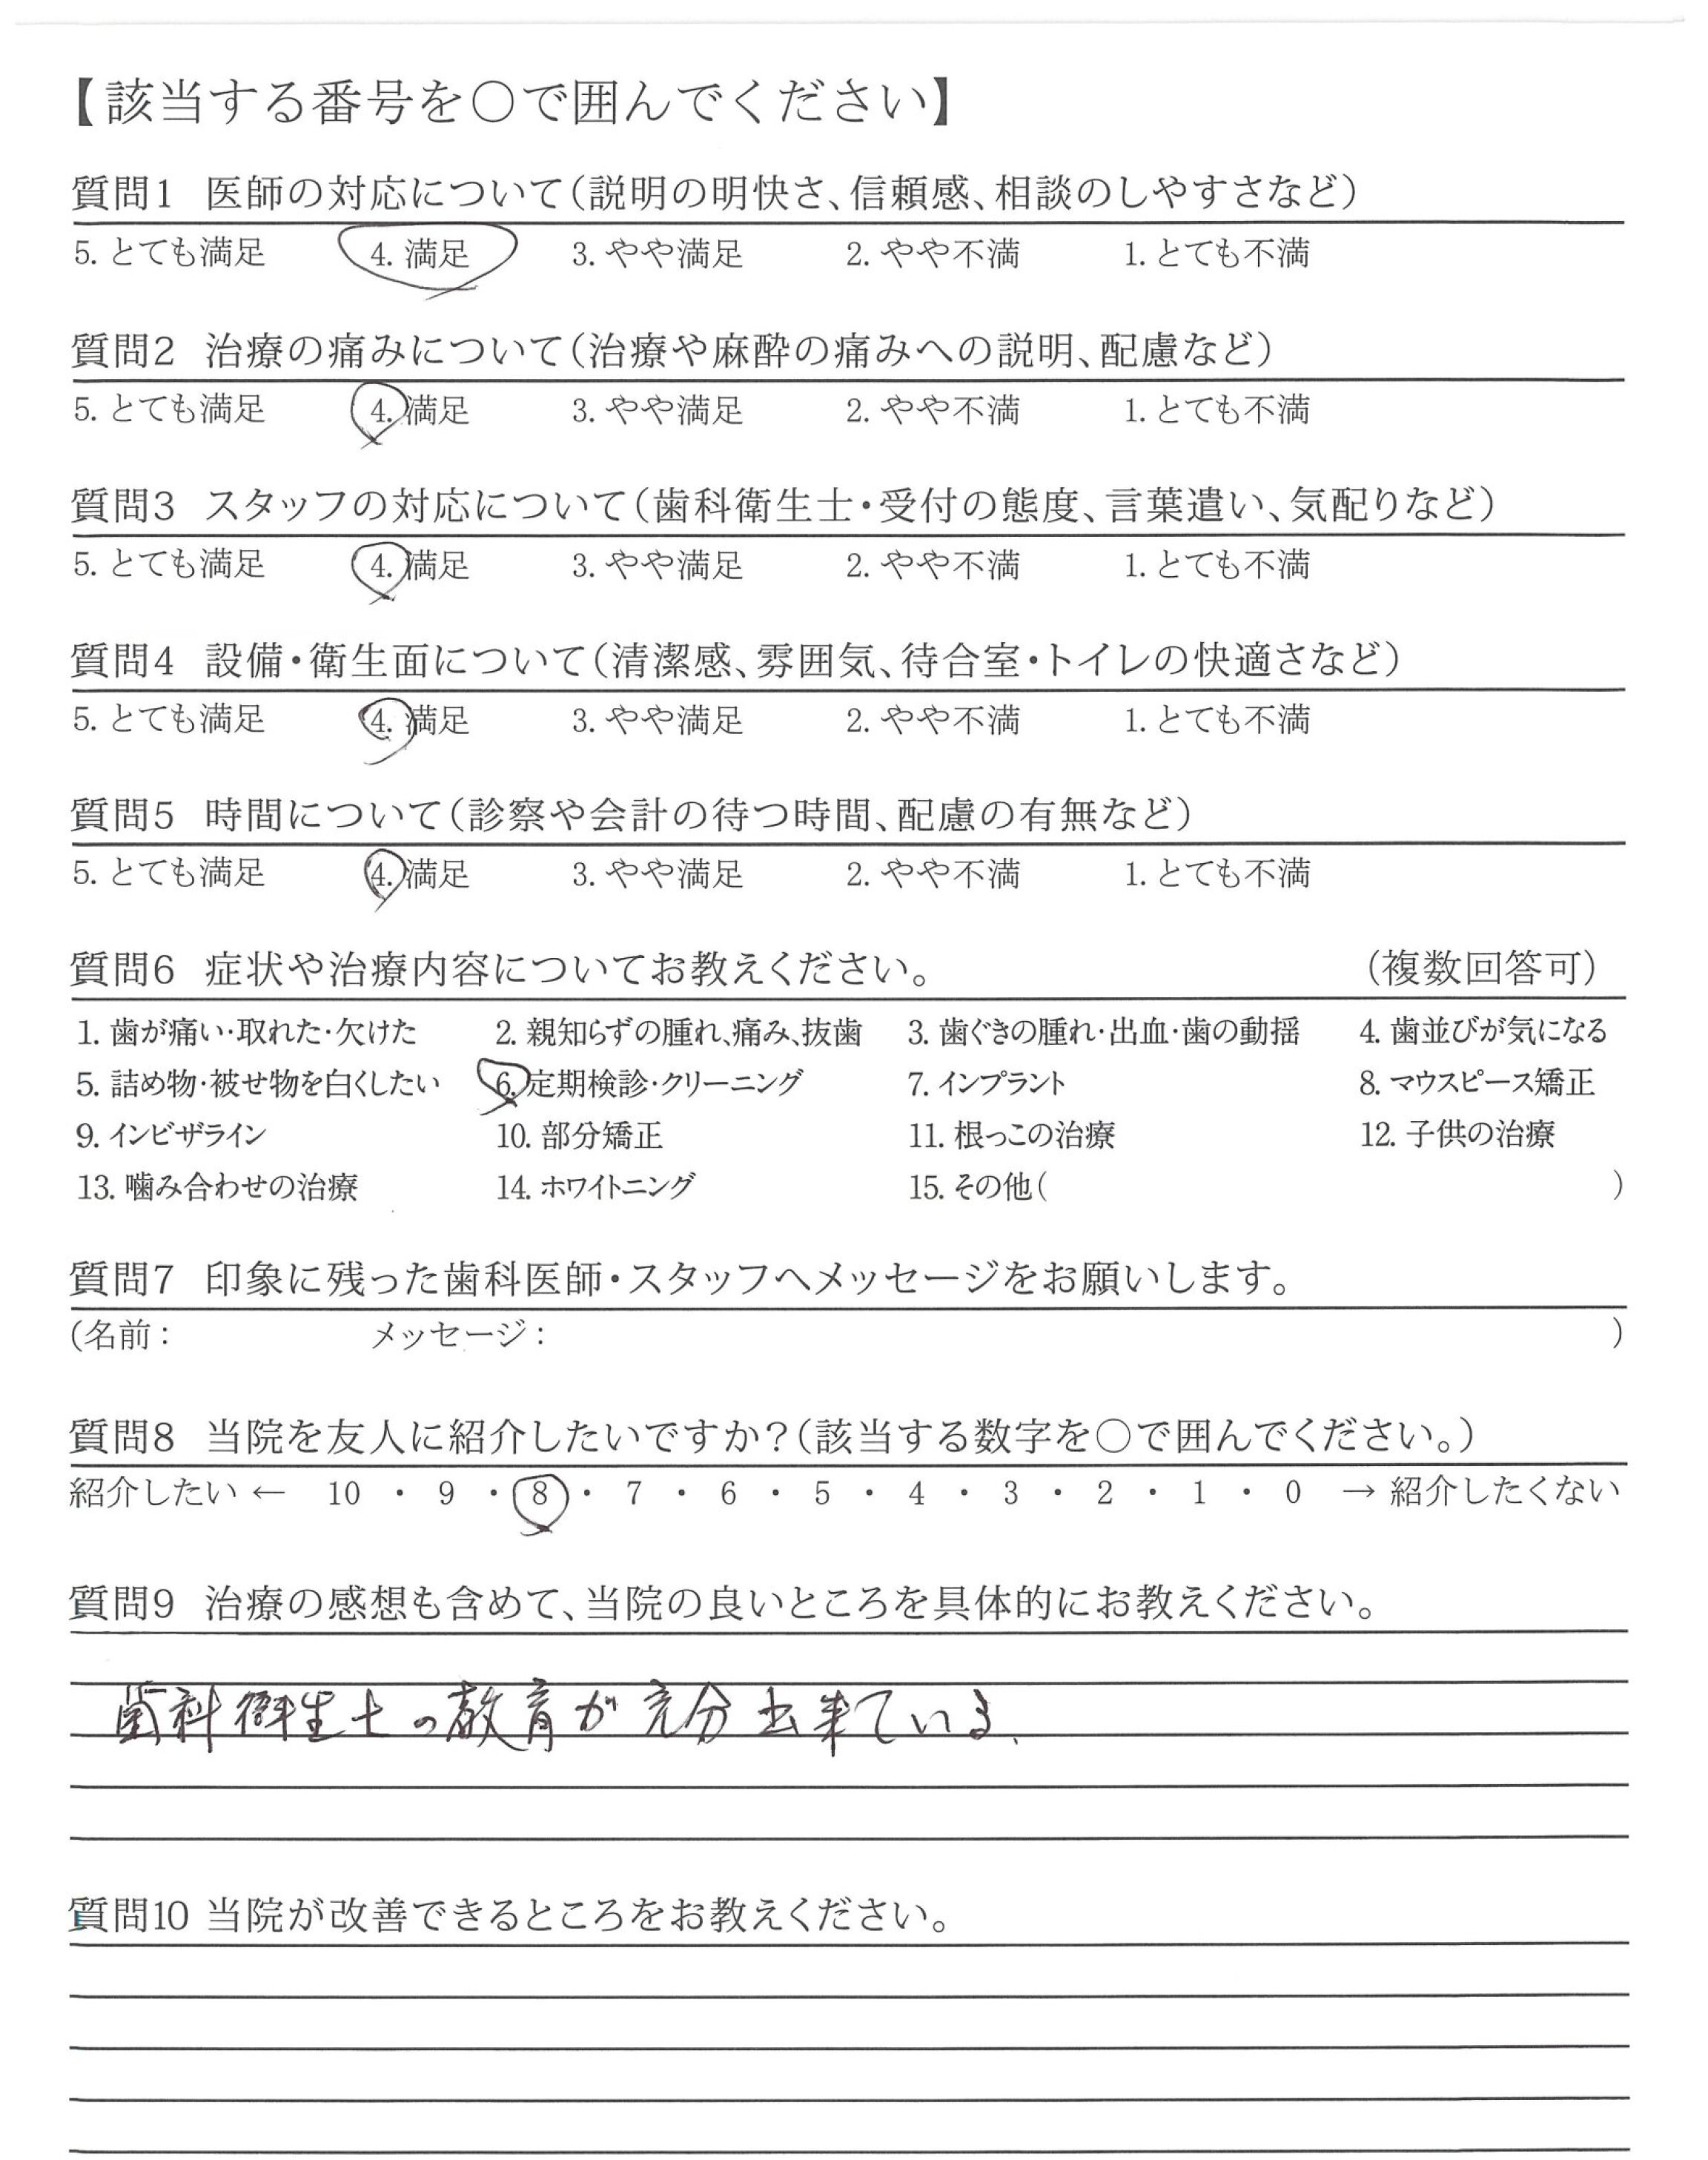 【該当する番号を○で囲んでください】
質問1 医師の対応について(説明の明快さ、信頼感、相談のしやすさなど)
5. とても満足 4. 満足 3. やや満足 2. やや不満 1. とても不満
質問2 治療の痛みについて(治療や麻酔の痛みへの説明、配慮など)
5. とても満足 4. 満足 3. やや満足 2. やや不満 1. とても不満
質問3 スタッフの対応について(歯科衛生士・受付の態度、言葉遣い、気配りなど)
5. とても満足 4. 満足 3. やや満足 2. やや不満 1. とても不満
質問4 設備・衛生面について(清潔感、雰囲気、待合室・トイレの快適さなど)
5. とても満足 4. 満足 3. やや満足 2. やや不満 1. とても不満
質問5 時間について(診察や会計の待つ時間、配慮の有無など)
5. とても満足 4. 満足 3. やや満足 2. やや不満 1. とても不満
質問6 症状や治療内容についてお教えください。 (複数回答可)
1. 歯が痛い・取れた・欠けた 2. 親知らずの腫れ、痛み、抜歯 3. 歯ぐきの腫れ・出血・歯の動揺 4. 歯並びが気になる
5. 詰め物・被せ物を白くしたい 6. 定期検診・クリーニング 7. インプラント 8. マウスピース矯正
9. インビザライン 10. 部分矯正 11. 根っこの治療 12. 子供の治療
13. 噛み合わせの治療 14. ホワイトニング 15. その他( )
質問7 印象に残った歯科医師・スタッフへメッセージをお願いします。
(名前: メッセージ: )
質問8 当院を友人に紹介したいですか?(該当する数字を○で囲んでください。)
紹介したい ← 10 ・ 9 ・ 8 ・ 7 ・ 6 ・ 5 ・ 4 ・ 3 ・ 2 ・ 1 ・ 0 → 紹介したくない
質問9 治療の感想も含めて、当院の良いところを具体的にお教えください。
歯科衛生士の教育が充分出来ている、
質問10 当院が改善できるところをお教えください。